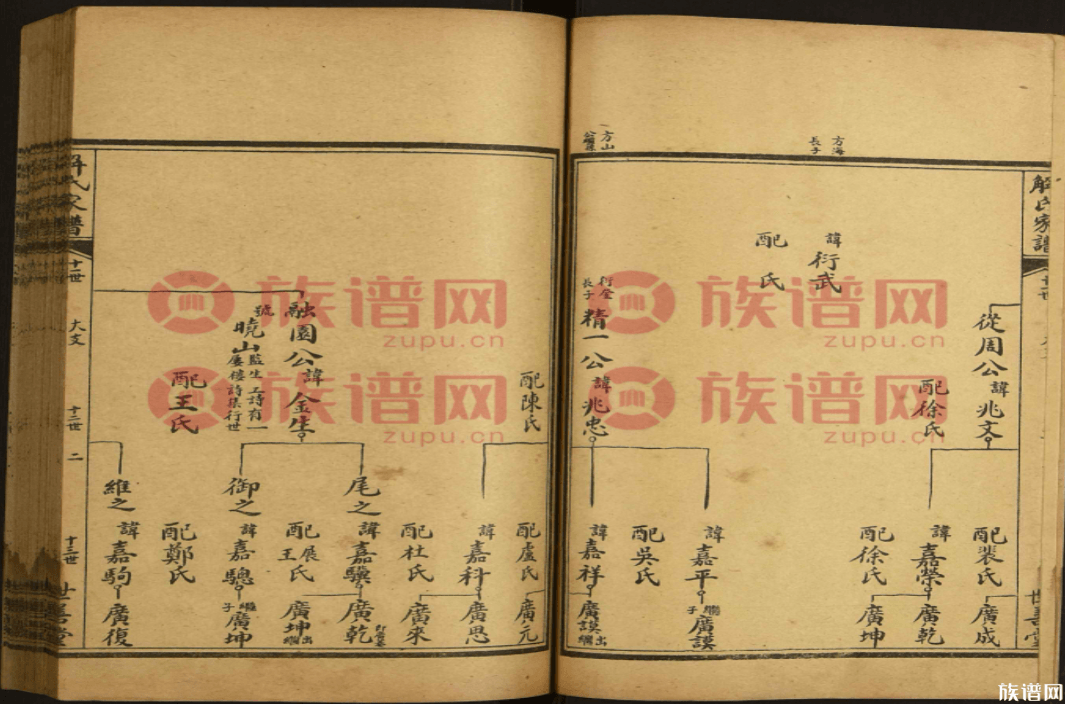 解氏家譜
世善堂
從周公 諱兆文
配徐氏
配裴氏
廣成
諱嘉榮
廣乾
配徐氏
廣坤
方海長子
諱衍武
配 氏
諱嘉平
繼子廣謨
配吳氏
方山公
衍全長子
精一公 諱兆忠
諱嘉祥
廣謨出繼
配陳氏
配盧氏
廣元
諱嘉科
廣恩
配杜氏
廣來
融園公 諱金生
號曉山
監生工詩有一
屢樓詩集行世
配王氏
尾之
諱嘉驥
廣乾
配展氏王
廣坤出繼
御之
諱嘉驄
繼子廣坤
配鄭氏
維之
諱嘉駒
廣復
氏家譜
十一世
大文
十二世
二
十三世
世善堂
族谱网
zupu.cn
族谱网
zupu.cn
族谱网
zupu.cn
族谱网
zupu.cn
族谱网